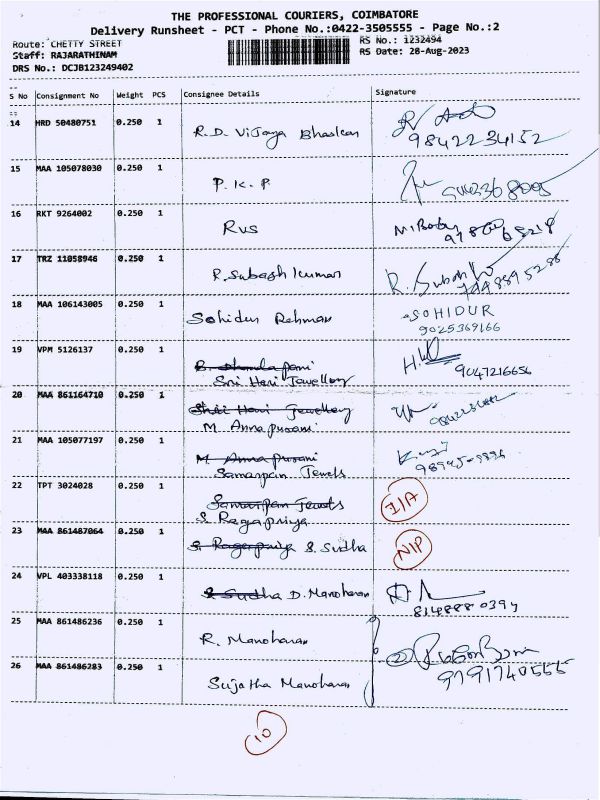 THE PROFESSIONAL COURIERS, COIMBATORE
Delivery Runsheet - PCT - Phone No.:0422-3505555 - Page No.:2
Route: CHETTY STREET
RS No.: 1232494
Staff: RAJARATHINAM
RS Date: 28-Aug-2023
DRS No.: DCJB123249402
S No Consignment No Weight PCS Consignee Details Signature
14 HRD 50480751 0.250 1 R.D. Vijaya Bhaskar
9842234152
15 MAA 105078030 0.250 1 P.K.P
16 RKT 9264002 0.250 1 RVS
17 TRZ 11058946 0.250 1 R. Subash kumar
18 MAA 106143005 0.250 1 Sohidur Rehman SOHIDUR
9025369166
19 VPM 5126137 0.250 1
Sri Hari Jewellery 9047216656
20 MAA 861164710 0.250 1 Shri Hari Jewellery
M. Annapurani
21 MAA 105077197 0.250 1 M. Annapurani
Samarpan Jewels
22 TPT 3024028 0.250 1 Samarpan Jewels I/A
S. Ragapriya
23 MAA 861487064 0.250 1 S. Ragapriya S. Sudha N/P
24 VPL 403338118 0.250 1 S. Sudha D. Manoharan
8148880394
25 MAA 861486236 0.250 1 R. Manoharan
26 MAA 861486283 0.250 1 Sujatha Manoharan
9791740555
10